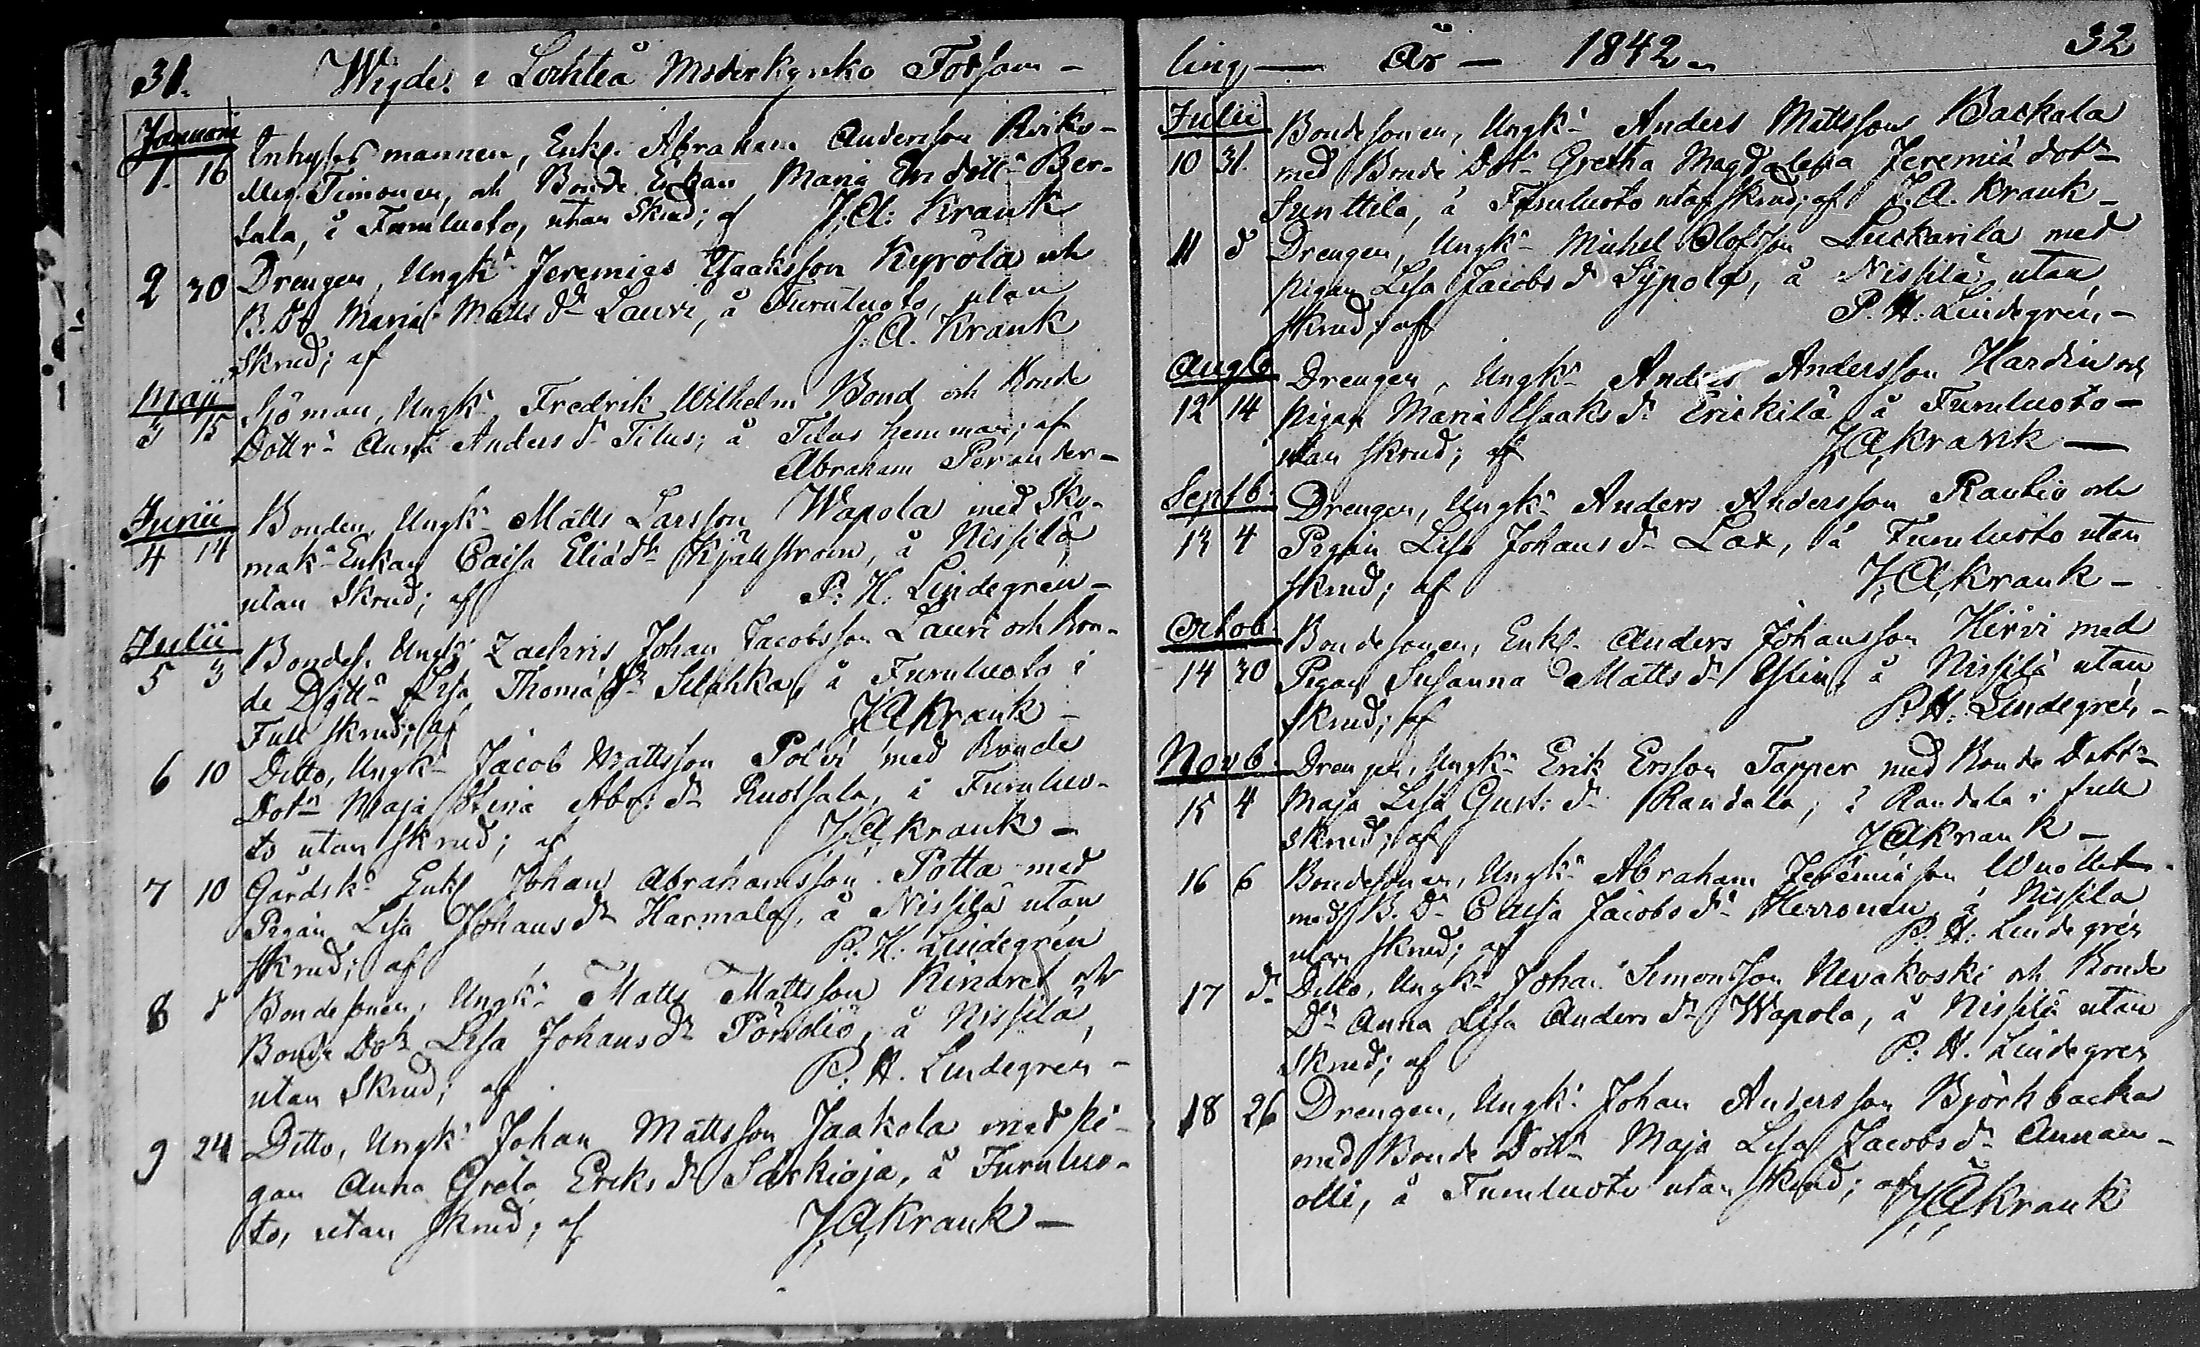 31. Wigde i Lochteå Moderkyrko Försam-
Januari
1. 16 Inhyses mannen, Enkl. Abraham Andersson
Timonen, och Bonde Enkan Maria Ber-
tala, å Furuluoto, utan Skrud; af J. A. Krank
2 30 Drengen, Ungk. Jeremias Isaaksson Kyrölä och
B. Dr Maria Matts dr Lauri, å Furuluoto, utan
Skrud; af J. A. Krank
Maji
3 15 Sjöman, Ungk. Fredrik Wilhelm Bond och Bonde
Dottr. Anna Anders dr Tilus; å Tilus hemman; af
Abraham Perander-
Junii
4 14 Bonden, Ungk. Matts Larsson Wapola med Sko-
mak. Enkan Caisa Eliädr Kjällström, å Nissilä
utan Skrud; af P. H. Lindegren-
Julii
5 3 Bondes. Ungk. Zachris Johan Jacobsson Lauri och Bon-
de Dott. Lisa Thomä dr, å Furuluoto i
Full skrud; af J. A. Krank-
6 10 Ditto, Ungk. Jacob Mattsson Polvi med Bonde
Dotr Maja Stina Abr: dr Ruotsala, i Furuluo-
to utan skrud; af J. A. Krank-
7 10 Gårdsk. Enkl. Johan Abrahamsson Potta med
Pigan Lisa Johans dr Harmala, å Nissilä utan
skrud; af P. H. Lindegrén
8 d Bondesonen, Ungk. Matts Mattsson och
Bonde Dotr Lisa Johans dr å Nissilä,
utan Skrud; af P. H. Lindegren-
9 24 Ditto, Ungk. Johan Mattsson Jaakola med Pi-
gan Anna Greta Eriks dr Särkioja, å Furuluo-
to, utan skrud; af J. A. Krank-
ling, - År - 1842. 32
Julii
10 31. Bondesonen, Ungk. Anders Mattsson Backala
med Bonde Dotr Gretha Magdalena Jeremiä dotr
Sunttila, å Furuluoto utaf skrud; af J. A. Krank-
11 d Drengen, Ungk. Michel Olofsson med
pigan Lisa Jacobs dr Sypola, å Nissilä utan
skrud; af P. H. Lindegrén-
Aug6
12 14 Drengen, Ungk. Anders Andersson Hardin och
pigan Maria Isaaks dr Erickilä å Furuluoto-
utan skrud; af J. A. Krank-
Septb.
13 4 Drengen, Ungk. Anders Andersson Rautio och
Pigan Lisa Johans dr Lax, å Furuluoto utan
skrud; af J. A. Krank-
Octob.
14 30 Bondesonen, Enkl. Anders Johansson Hirvi med
Pigan Susanna Matts dr å Nissilä utan
skrud; af P. H. Lindegrén-
Novb.
15 4 Drengen, Ungk. Erik Ersson Tapper med Bonde Dottr
Maja Lisa Gust: dr Randala; å Randala i full
skrud; af J. A. Krank-
16 6 Bondesonen, Ungk. Abraham Jeremiäson
med B. Dr Caisa Jacobs dr Herronen å Nissilä
utan skrud; af P. H. Lindegrén
17 d. Ditto, Ungk. Johan Simonsson Nevakoski och Bonde
Dr Anna Lisa Anders dr Wapola, å Nissilä utan
skrud; af P. H. Lindegren
18 26 Drengen, Ungk. Johan Andersson Björkbacka
med Bonde Dottr Maja Lisa Jacobs dr Annan-
olli, å Furuluoto utan skrud; af J. A. Krank